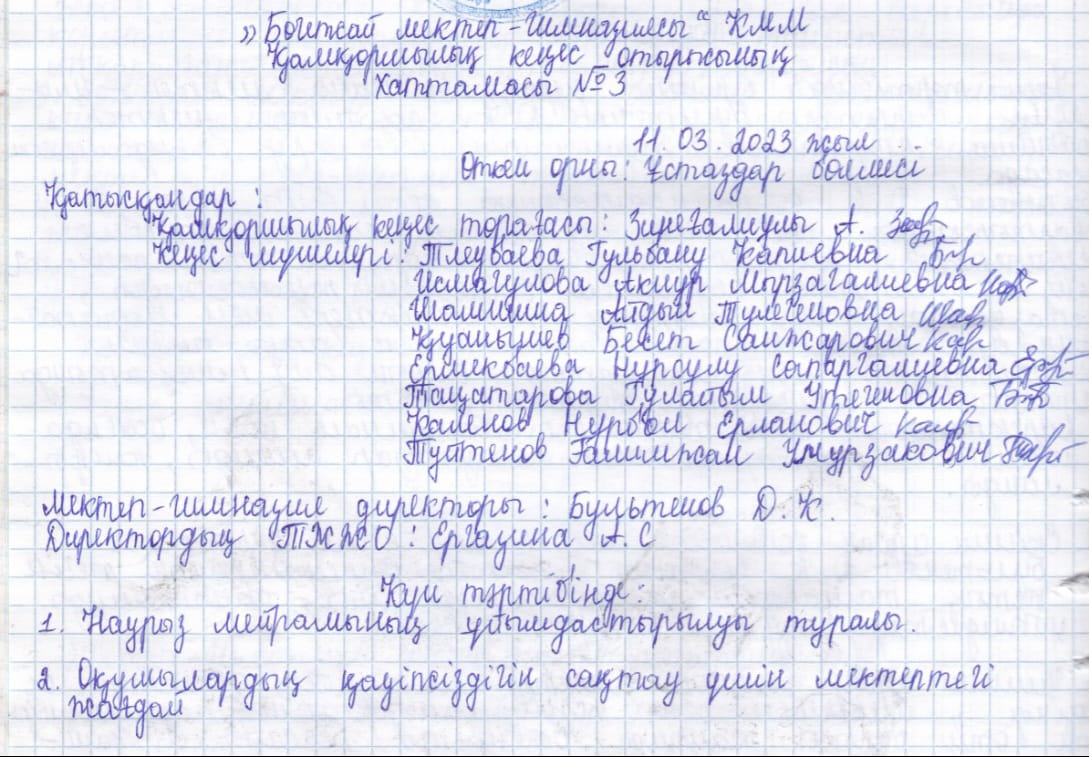 „Бозжсай мектеп-гимназиясы“ КММ
Қамқоршылық кеңес отырысының
Хаттамасы №3
11.03.2023 жыл
Өткен орны: Ұстаздар бөлмесі
Қатысқандар:
Қамқоршылық кеңес төрағасы: Зинегалиулы А.
Кеңес мүшелері: Тлеубаева Гульбану Капиевна
Исмагулова Акнур Мырзагалиевна
Шамшина Айдын Тулегеновна
Қуанышев Бесет Санжарович
Ермекбаева Нурсулу Сапаргалиевна
Тащатарова Гулайым Утегеновна
Каленов Нурбол Ерланович
Туйтенов Галимжан Умурзакович
Мектеп-гимназия директоры: Бультенов Д.К.
Директордың ТЖЖО: Ергазина А.С
Күн тәртібінде:
1. Наурыз мейрамының ұйымдастырылуы туралы.
2. Оқушылардың қауіпсіздігін сақтау үшін мектептегі
жағдай